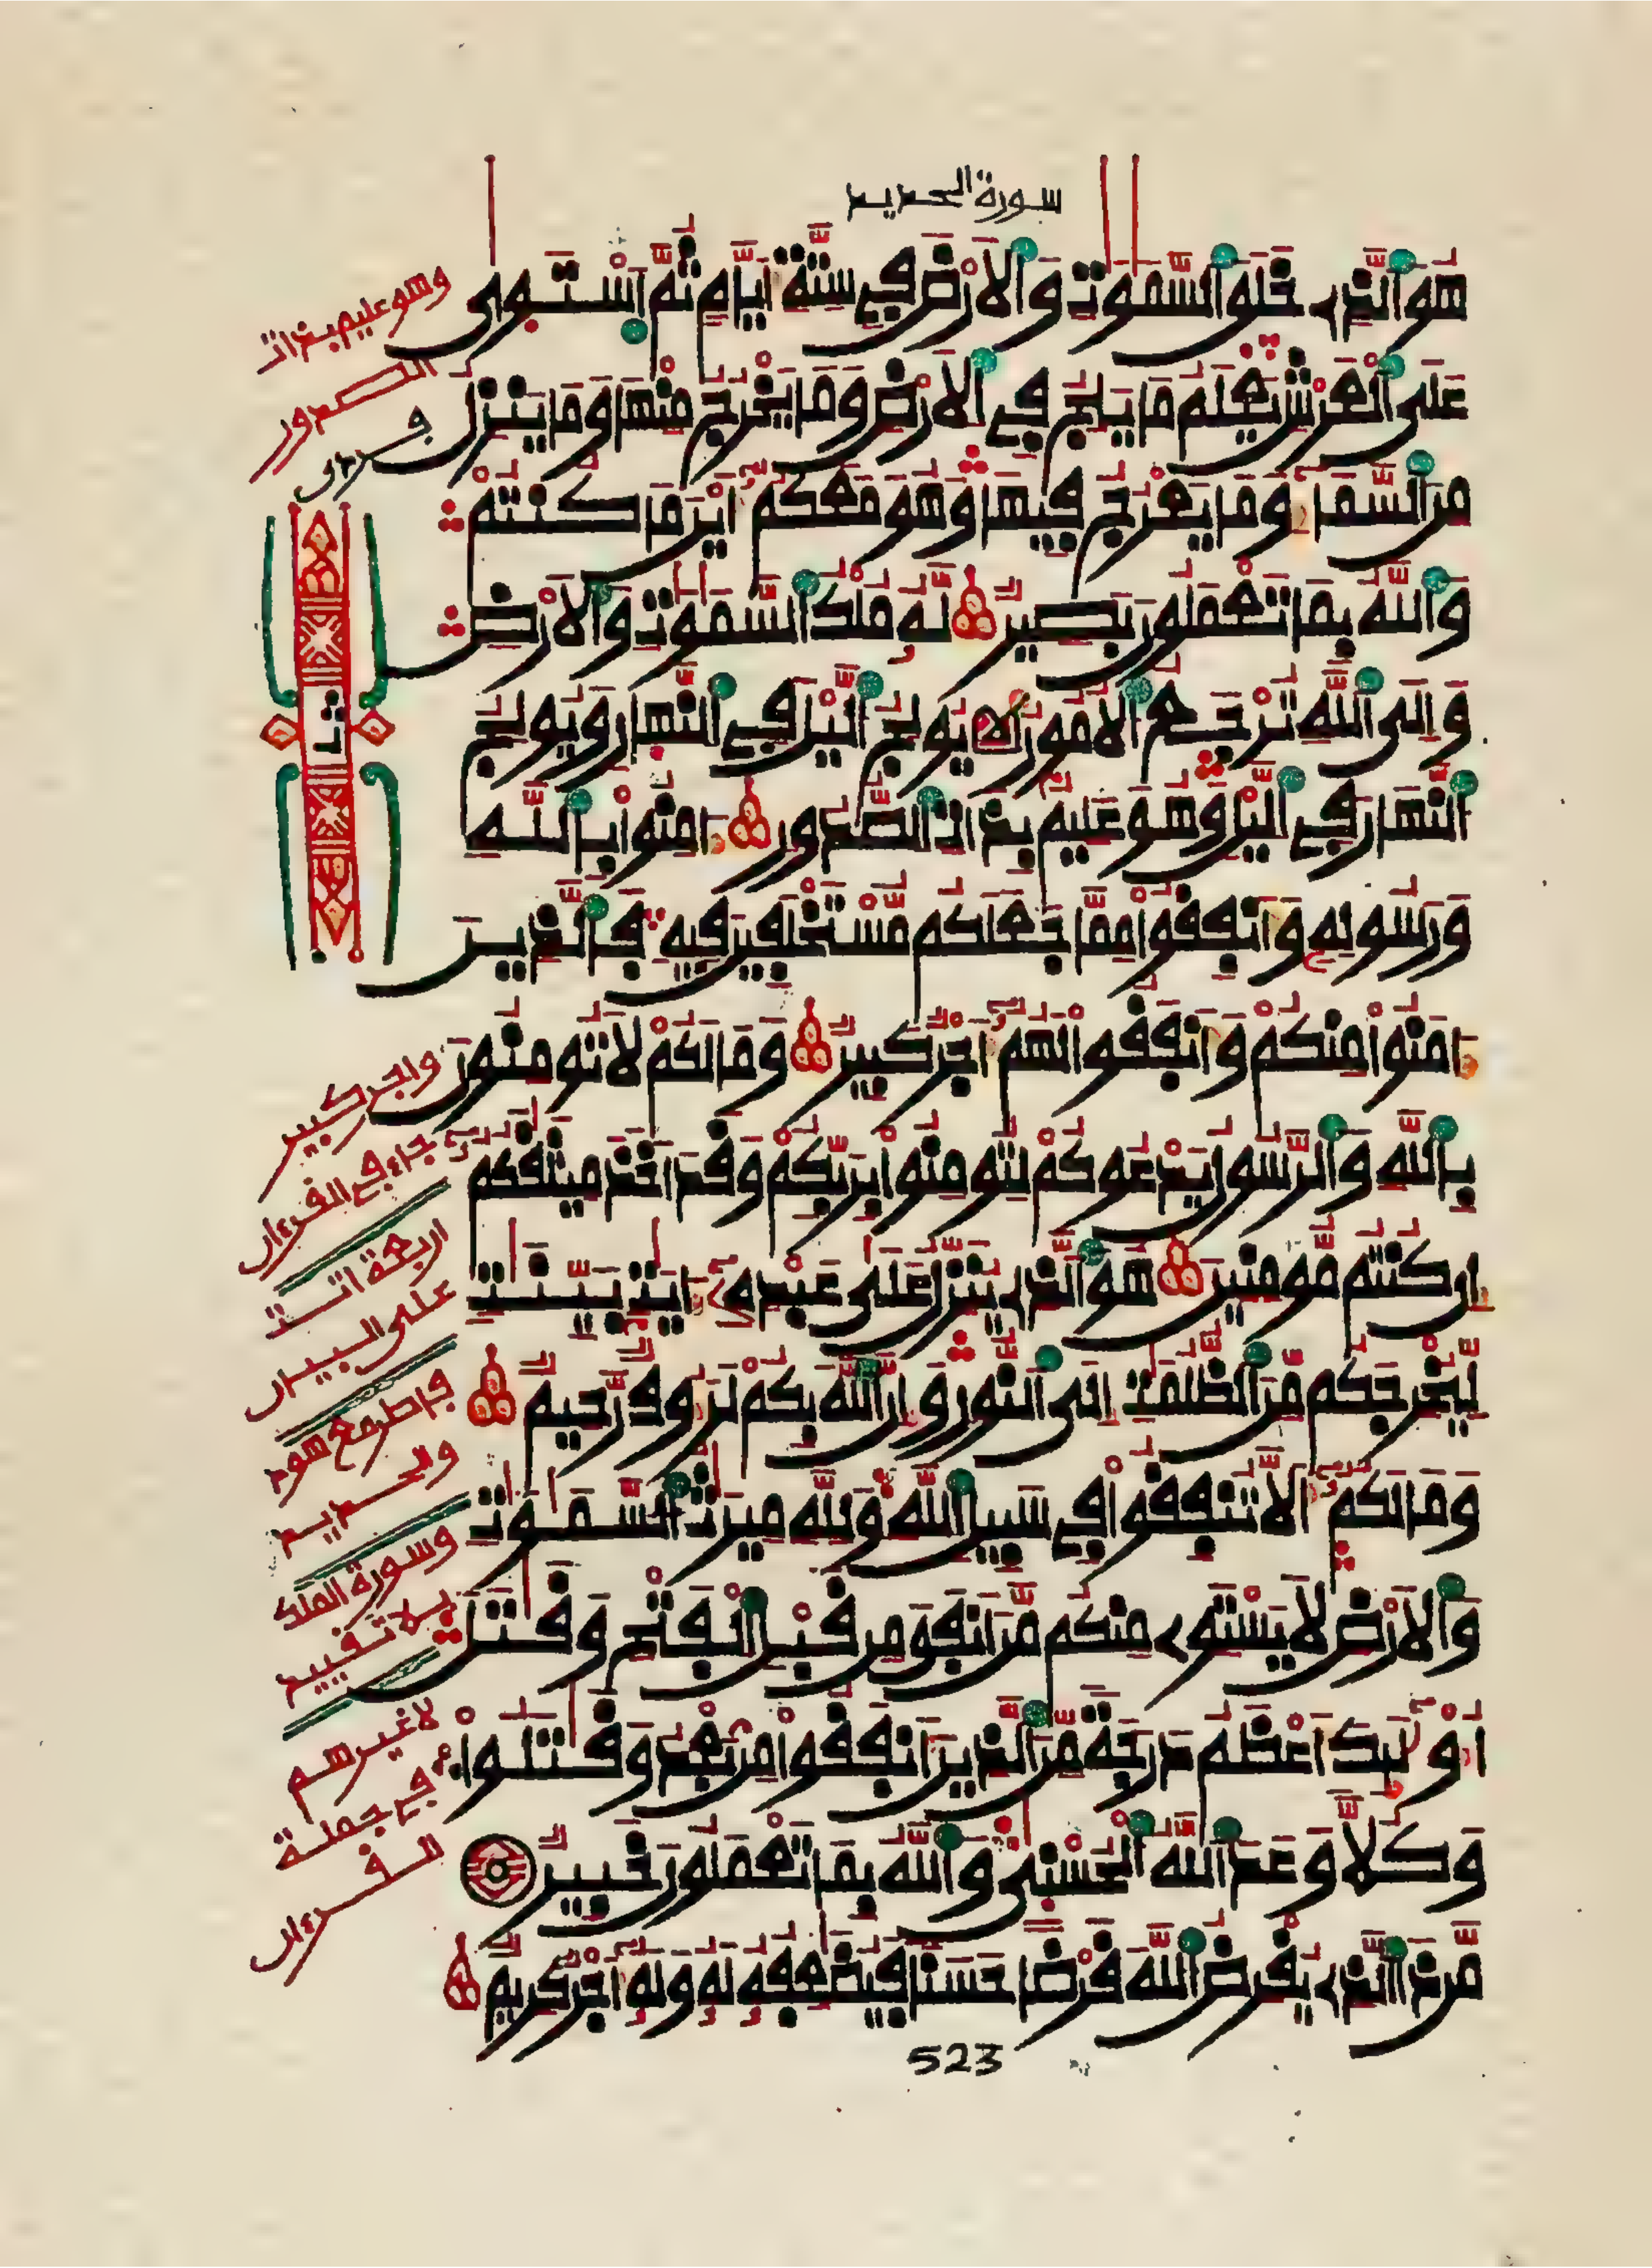 سورة الحديد
هُوَ ٱلَّذِے خَلَقَ ٱلسَّمَٰوَٰتِ وَٱلَارْضَ فِے سِتَّةِ أَيَّامٖ ثُمَّ ٱسْتَوَىٰ
عَلَى ٱلْعَرْشِ يَعْلَمُ مَا يَلِجُ فِے ٱلَارْضِ وَمَا يَخْرُجُ مِنْهَا وَمَا يَنزِلُ
مِنَ ٱلسَّمَآءِ وَمَا يَعْرُجُ فِيهَا وَهُوَ مَعَكُمُۥٓ أَيْنَ مَا كُنتُمْ
وَٱللَّهُ بِمَا تَعْمَلُونَ بَصِيرٞ لَّهُۥ مُلْكُ ٱلسَّمَٰوَٰتِ وَٱلَارْضِ
وَإِلَى ٱللَّهِ تُرْجَعُ ٱلُامُورُ يُولِجُ ٱلَّيْلَ فِے ٱلنَّهَارِ وَيُولِجُ
ٱلنَّهَارَ فِے ٱلَّيْلِ وَهُوَ عَلِيمُۢ بِذَاتِ ٱلصُّدُورِ ءَامِنُوا۟ بِٱللَّهِ
وَرَسُولِهِۦ وَأَنفِقُوا۟ مِمَّا جَعَلَكُم مُّسْتَخْلَفِينَ فِيهِ فَٱلَّذِينَ
ءَامَنُوا۟ مِنكُمْ وَأَنفَقُوا۟ لَهُمُۥٓ أَجْرٞ كَبِيرٞ وَمَا لَكُمْ لَا تُومِنُونَ
بِٱللَّهِ وَٱلرَّسُولُ يَدْعُوكُمْ لِتُومِنُوا۟ بِرَبِّكُمْ وَقَدَ اَخَذَ مِيثَٰقَكُمُۥٓ
إِن كُنتُم مُّومِنِينَ هُوَ ٱلَّذِے يُنَزِّلُ عَلَىٰ عَبْدِهِۦٓ ءَايَٰتِۢ بَيِّنَٰتٖ
لِّيُخْرِجَكُم مِّنَ ٱلظُّلُمَٰتِ إِلَى ٱلنُّورِ وَإِنَّ ٱللَّهَ بِكُمْ لَرَءُوفٞ رَّحِيمٞ
وَمَا لَكُمُۥٓ أَلَّا تُنفِقُوا۟ فِے سَبِيلِ ٱللَّهِ وَلِلَّهِ مِيرَٰثُ ٱلسَّمَٰوَٰتِ
وَٱلَارْضِ لَا يَسْتَوِے مِنكُم مَّنَ اَنفَقَ مِن قَبْلِ ٱلْفَتْحِ وَقَٰتَلَ
أُو۟لَٰٓئِكَ أَعْظَمُ دَرَجَةٗ مِّنَ ٱلَّذِينَ أَنفَقُوا۟ مِنۢ بَعْدُ وَقَٰتَلُوا۟
وَكُلّٗا وَعَدَ ٱللَّهُ ٱلْحُسْنَىٰ وَٱللَّهُ بِمَا تَعْمَلُونَ خَبِيرٞ
مَّن ذَا ٱلَّذِے يُقْرِضُ ٱللَّهَ قَرْضًا حَسَنٗا فَيُضَٰعِفُهُۥ لَهُۥ وَلَهُۥٓ أَجْرٞ كَرِيمٞ
523
وهو عليم بذات
الصدور
قرءان
ثمن
واجر كبير
جاء في القرءان
اربعة اتت
على البيان
فاطر مع هود
والحديد
وسورة الملك
بلا تقييد
لا غيرهم
في جملة
القرءان